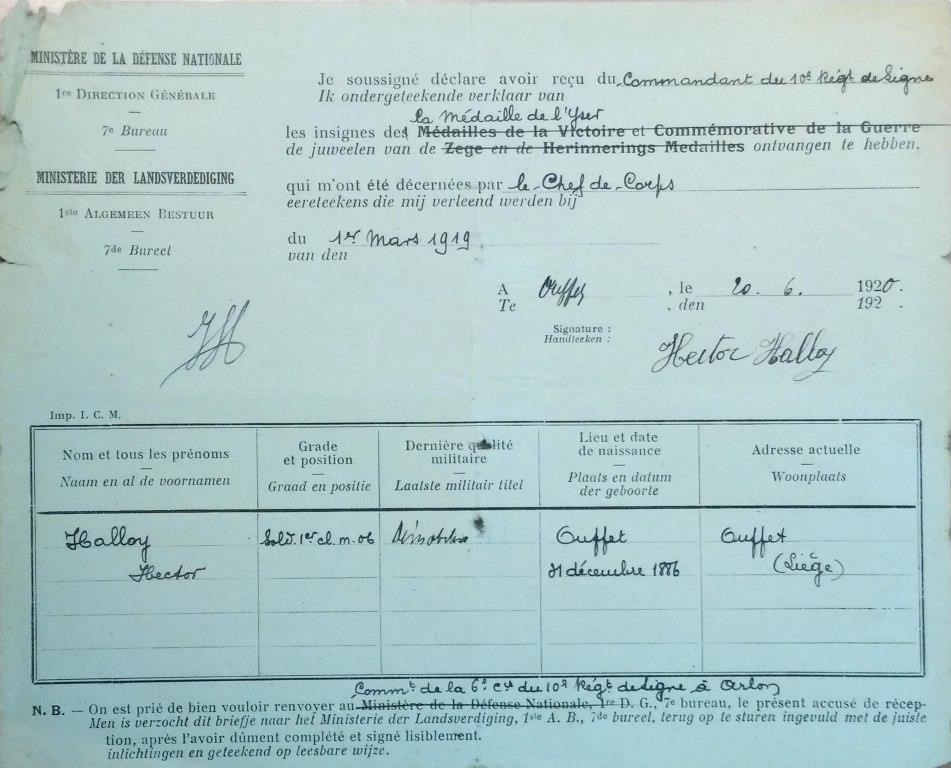 MINISTÈRE DE LA DÉFENSE NATIONALE
1re DIRECTION GÉNÉRALE
7e Bureau
MINISTERIE DER LANDSVERDEDIGING
1ste ALGEMEEN BESTUUR
7de Bureel
Je soussigné déclare avoir reçu du Commandant du 10e Régt de Ligne
Ik ondergeteekende verklaar van
la Médaille de l'Yser
les insignes des Médailles de la Victoire et Commémorative de la Guerre
de juweelen van de Zege en de Herinnerings Medailles ontvangen te hebben.
qui m'ont été décernées par le Chef de Corps
eereteekens die mij verleend werden bij
du 1er Mars 1919
van den
A Ouffet, le 20. 6. 1920.
Te , den 192 .
Signature :
Handteeken :
Hector Halloy
HH
Imp. I. C. M.
Nom et tous les prénoms Grade et position Dernière qualité militaire Lieu et date de naissance Adresse actuelle
Naam en al de voornamen Graad en positie Laatste militair titel Plaats en datum der geboorte Woonplaats
Halloy Sold. 1er cl. m. 06 Ouffet Ouffet
Hector 31 décembre 1886 (Liège)
Commt de la 6e Cie du 10e Régt de Ligne à Arlon
N. B. — On est prié de bien vouloir renvoyer au Ministère de la Défense Nationale, 1re D. G., 7e bureau, le présent accusé de récep-
Men is verzocht dit briefje naar het Ministerie der Landsverdiging, 1ste A. B., 7de bureel, terug op te sturen ingevuld met de juiste
tion, après l'avoir dûment complété et signé lisiblement.
inlichtingen en geteekend op leesbare wijze.